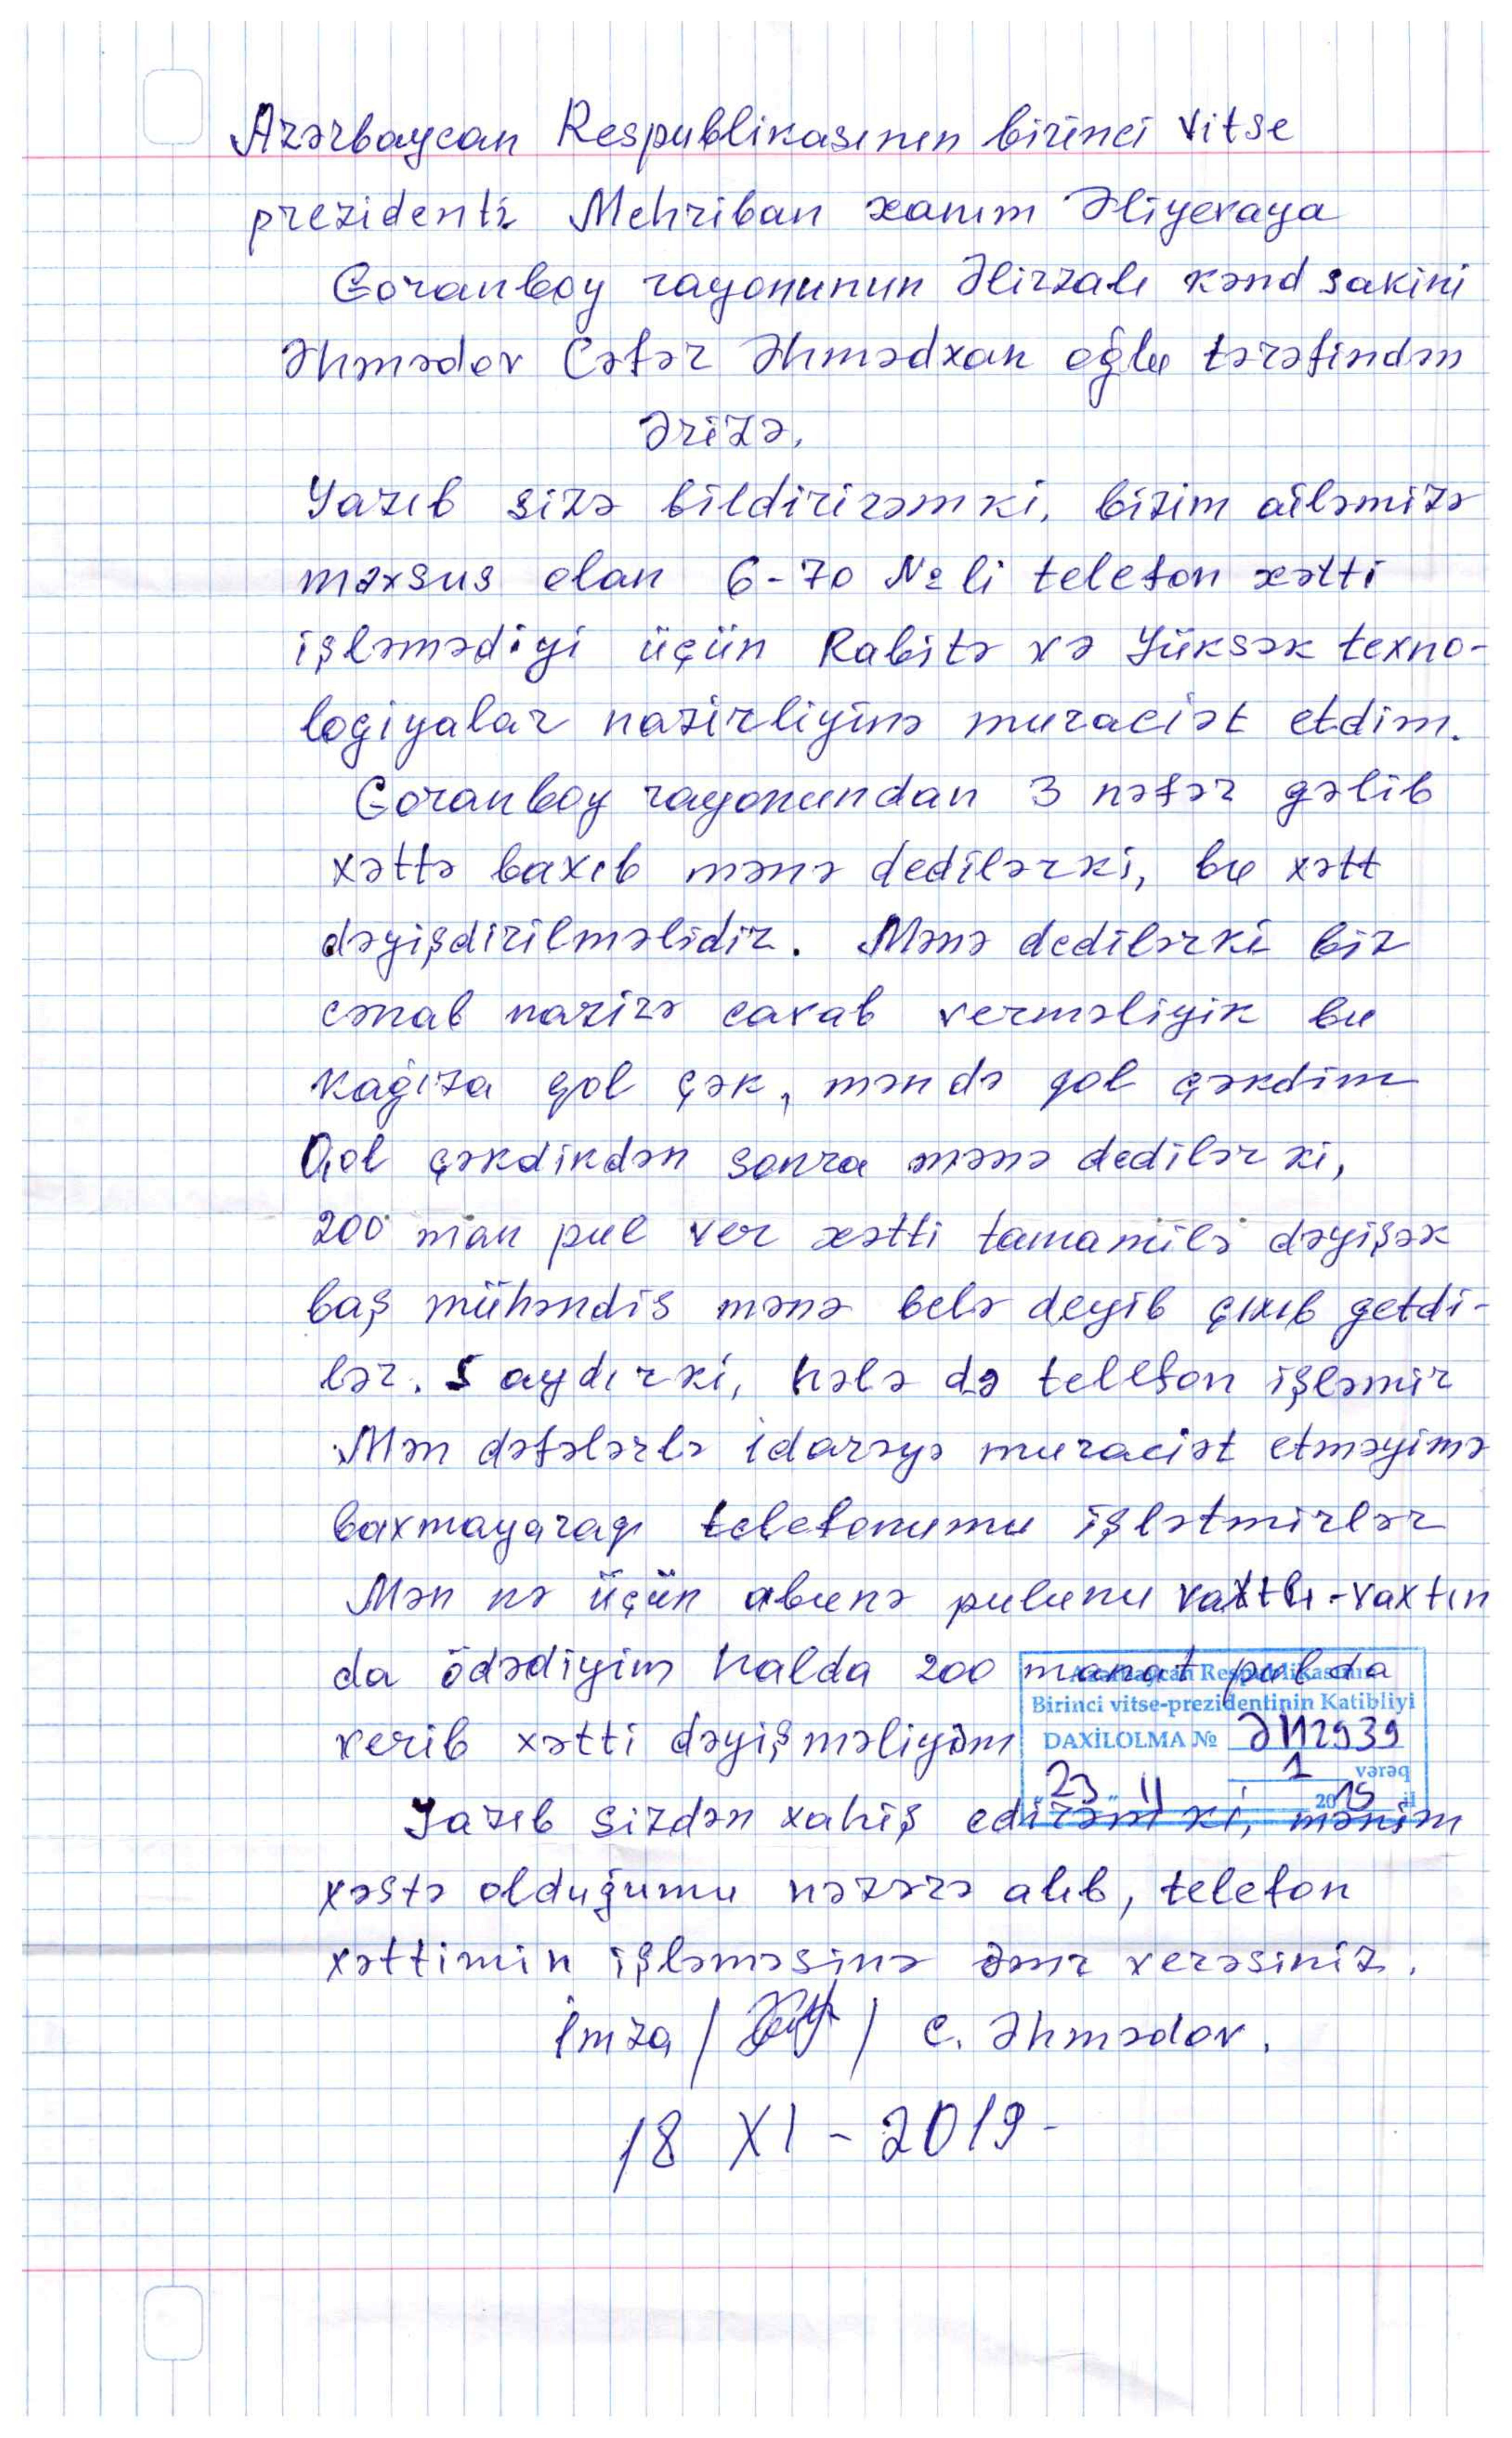 Azərbaycan Respublikasının birinci vitse
prezidenti Mehriban xanım Əliyevaya
Goranboy rayonunun Əlirzalı kənd sakini
Əhmədov Cəfər Əhmədxan oğlu tərəfindən
Ərizə.
Yazıb sizə bildirirəmki, bizim ailəmizə
məxsus olan 6-70 №li telefon xətti
işləmədiyi üçün Rabitə və Yüksək texno-
logiyalar nazirliyinə muraciət etdim.
Goranboy rayonundan 3 nəfər gəlib
xəttə baxıb mənə dedilərki, bu xətt
dəyişdirilməlidir. Mənə dedilərki biz
cənab nazirə cavab verməliyik bu
kağıza qol çək, məndə qol çəkdim
Qol çəkdikdən sonra mənə dedilər ki,
200 man pul ver xətti tamamilə dəyişək
baş mühəndis mənə belə deyib çıxıb getdi-
lər. 5 aydır ki, hələ də telefon işləmir
Mən dəfələrlə idarəyə muraciət etməyimə
baxmayaraq telefonumu işlətmirlər
Mən nə üçün abunə pulunu vaxtlı-vaxtın
da ödədiyim halda 200 manat pulda
verib xətti dəyişməliyəm
Azərbaycan Respublikasının
Birinci vitse-prezidentinin Katibliyi
DAXİLOLMA № ƏM2939
1 vərəq
"23" 11 2019 il
Yazıb sizdən xahiş edirəm ki, mənim
xəstə olduğumu nəzərə alıb, telefon
xəttimin işləməsinə əmr verəsiniz.
İmza / / C. Əhmədov.
18 XI - 2019-